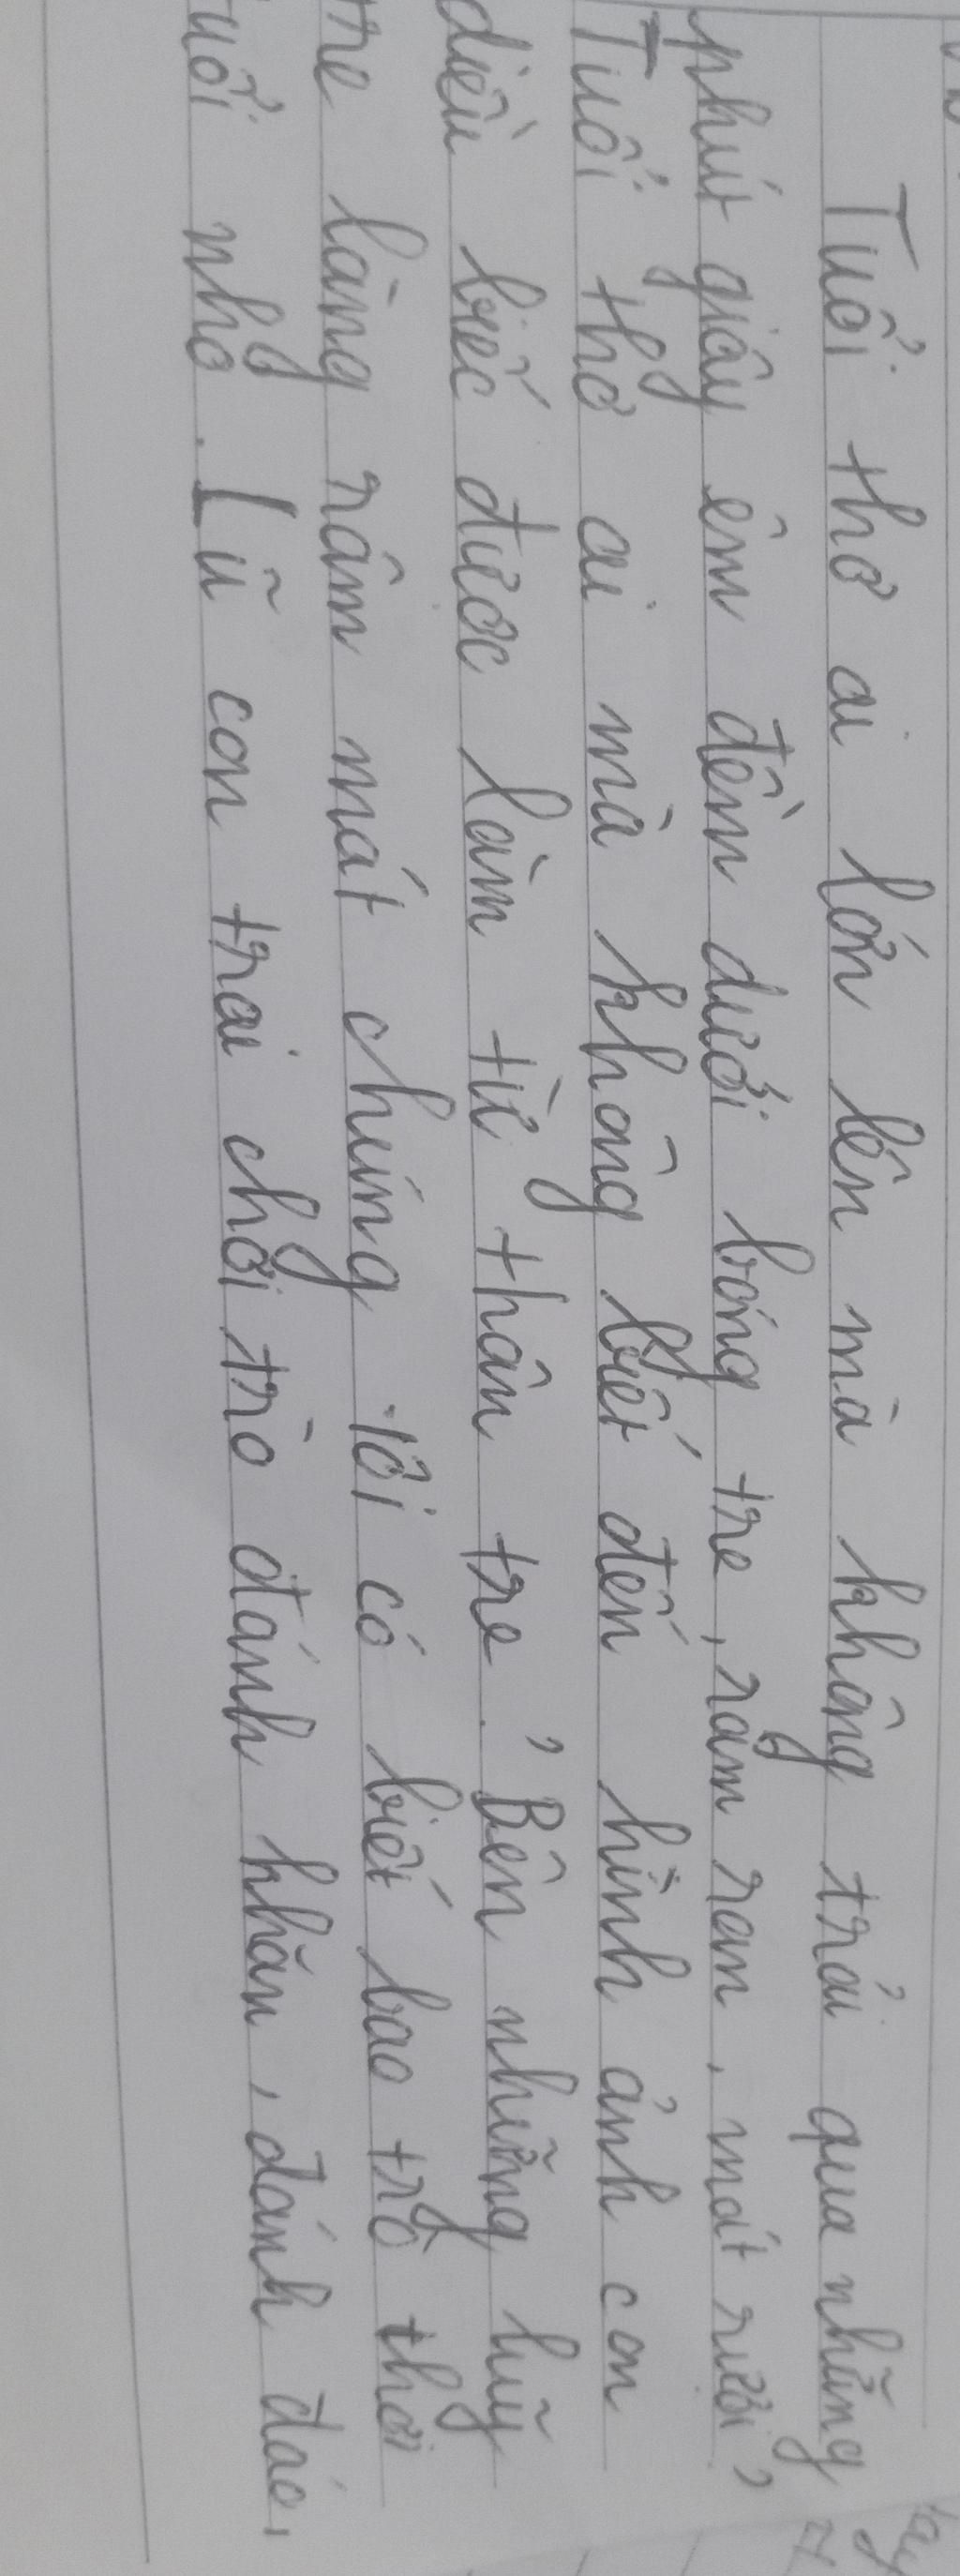 Tuổi thơ ai lớn lên mà không trải qua những
phút giây êm đềm dưới bóng tre, rầm ran, mát rười?
Tuổi thơ ai mà không biết đến hình ảnh con
diều biếc được làm từ thân tre? Bên những luỹ
tre làng râm mát chúng tôi có biết bao trò thời
tuổi nhỏ. Lũ con trai chơi trò đánh khăn, đánh đáo,